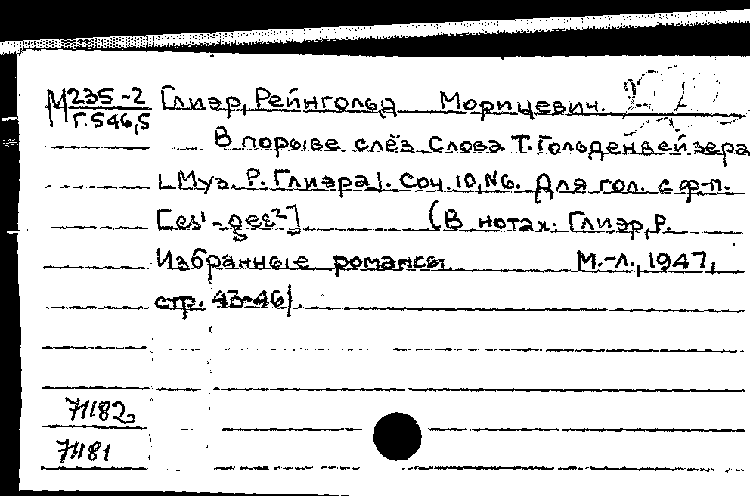 М 235-2 Глиэр, Рейнгольд Морицевич.
Г.546,5
В порыве слёз Слова Т. Гольденвейзера
[Муз. Р. Глиэра]. Соч. 10, №6. Для гол. с ф-п.
[es¹-ges²] (В нотах: Глиэр, Р.
Избранные романсы М.-Л., 1947,
стр. 43-46).
71182
71181